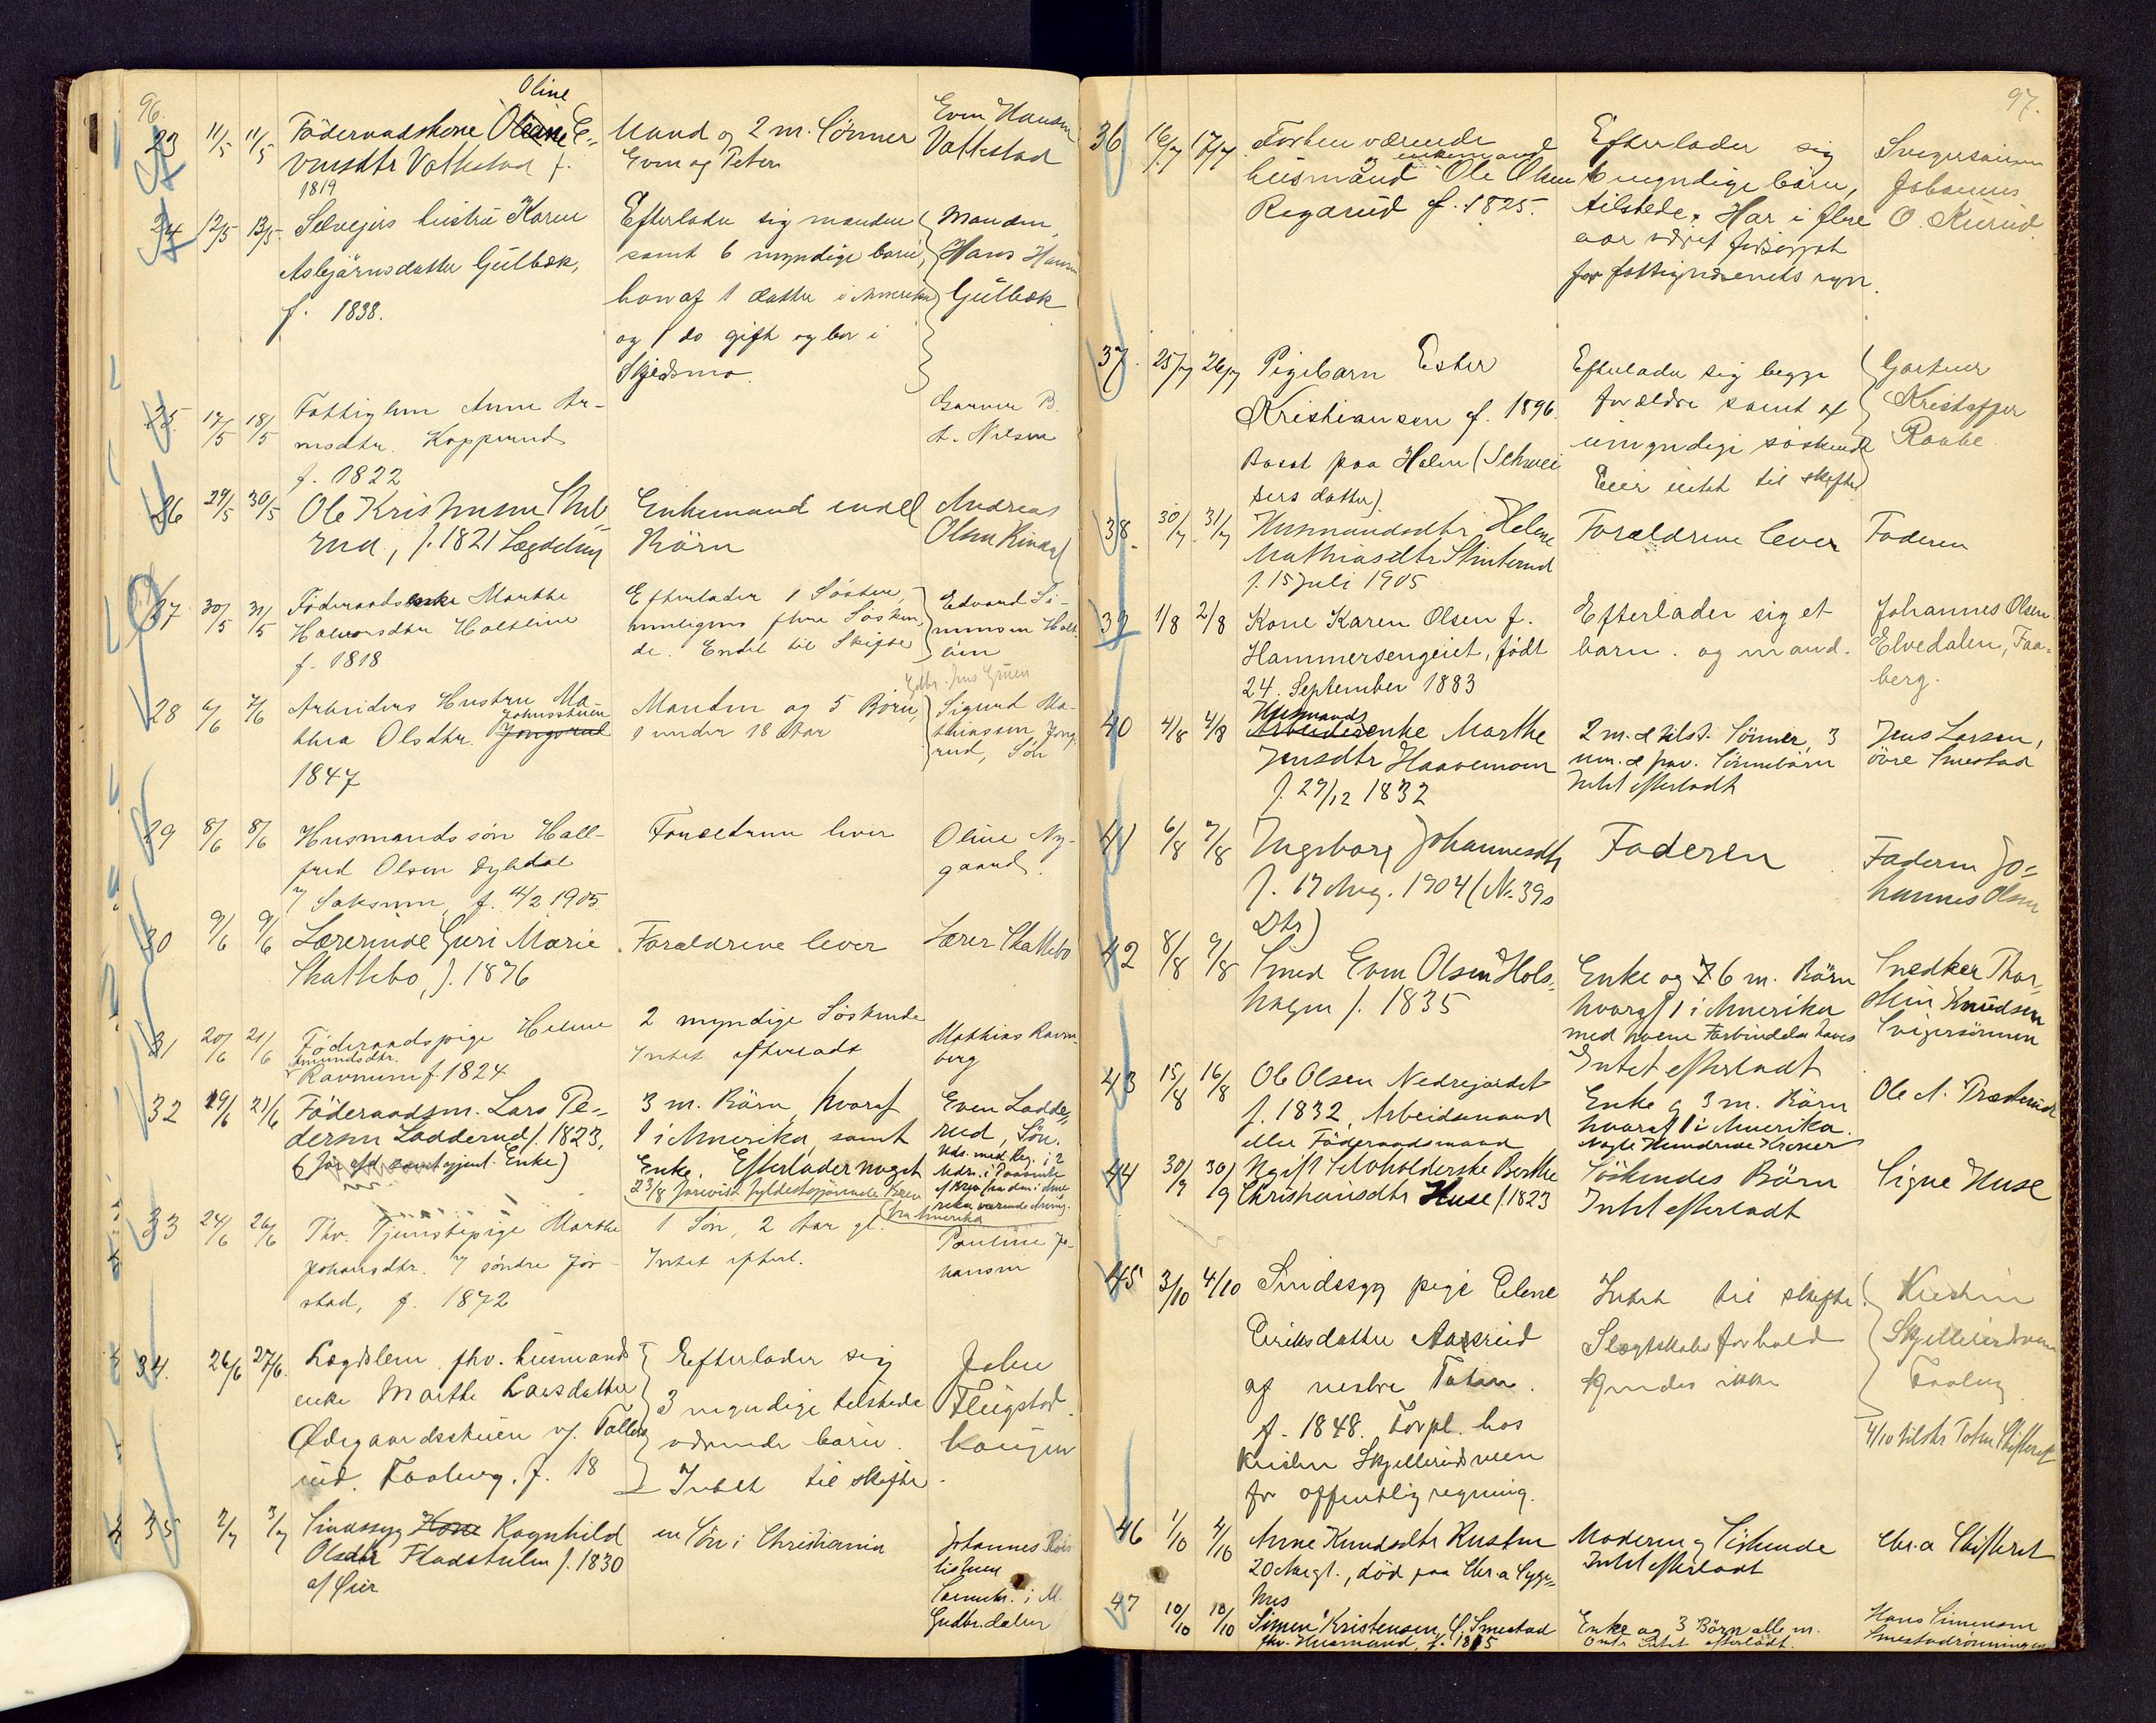 96.
Oline
23 11/5 11/5 Föderaadskone Oleane E- Mand og 2 m. Sönner Even Hansen
vensdtr Vattestad f. Even og Peter Vattestad
1819
24 12/5 13/5 Selveiers hustru Karen Efterlader sig manden Manden,
Asbjørnsdatter Gulbæk, samt 6 myndige børn, Hans Hansen
f. 1838. hvoraf 1 datter i Amerika Gulbæk
og 1 do gift og bor i
Skjedsmo.
25 17/5 18/5 Fattiglem Anne Ar-
nesdtr. A. Nilsen
f. 1822
26 29/5 30/5 Ole Kristensen Enkemand uden Andreas
rud, f. 1821 Lægdslem Börn Olsen
27 30/5 31/5 Föderaadsenke Marthe Efterlader 1 Söster, Edvard Si-
Halvorsdtr Holtlien flere Sösken- monsen Holt-
f. 1818 de. Endel til Skifte lien
28 6/6 7/6 Arbeiders Hustru Ma- Manden og 5 Börn, Sigurd Ma-
thea Olsdtr. Jongsrud 1 under 18 Aar thiassen Jong-
1847 rud, Sön
29 8/6 8/6 Husmandssön Hall- Forældrene lever Oline Ny-
fred Olsen Dybdal gaard.
Saksum, f. 4/2 1905
30 9/6 9/6 Lærerinde Guri Marie Forældrene lever Lærer Skattebo
Skattebo, f. 1876
31 20/6 21/6 Föderaadspige Helene 2 myndige Söskende Mathias Ravn-
Amundsdtr. Intet efterladt berg
Ravnum f. 1824
32 19/6 21/6 Föderaadsm. Lars Pe- 3 m. Börn, hvoraf Even Ladde-
dersen Ladderud f. 1823, 1 i Amerika, samt rud, Sön.
Enke. Efterlader noget
33 24/6 26/6 Thv. Tjenestepige Marthe 1 Sön, 2 Aar gl. Pauline Jo-
Johansdtr. söndre Jör- Intet efterl. hansen
stad, f. 1872
34. 26/6 27/6. Lægdslem fhv. husmands Efterlader sig John
enke Marthe Larsdatter 3 myndige tilstede Flugstad.
Ødegaardsstuen værende børn.
Faaberg. f. 18 Intet til skifte.
35 2/7 3/7 Sindssyg Kone Ragnhild en Sön i Christiania Johannes
Olsdtr Fladstulen f. 1830
af Öier
Gudbr.dalen
97.
36 16/7 17/7 Forhenværende Efterlader sig Svigersønnen
og enkemand
husmand Ole Olsen 6 myndige børn, Johannes
Rogärud f. 1825. tilstede. Har i flere O. Kurud
aar været forsørget
for fattigvæsenets regn.
37. 25/7 26/7 Pigebarn Ester Efterlader sig begge Gartner
Kristiansen f. 1896. forældre samt Kristoffer
Bosat paa Holen (Schwei umyndige søskende Raabe.
sers datter). Eier intet til skifte
38. 30/7 31/7 Husmandsdtr Helene Forældrene lever Faderen
Mathiasdtr Stinterud
f. 15 Juli 1905
39 1/8 2/8 Kone Karen Olsen f. Efterlader sig et Johannes Olsen
Hammersengeiet, født barn. og mand. Elvedalen, Faa-
24. September 1883 berg.
Husmands
40 4/8 4/8 Arbeidersenke Marthe 2 m. & tilst. Sönner, 3 Jens Larsen,
Jensdtr Haavemoen um. & frav. Sönnebörn övre Smestad
f. 27/12 1832 Intet efterladt
41 6/8 7/8 Ingeborg Johannesdtr Faderen Faderen Jo-
f. 17 Aug. 1904 (No. 39s hannes Olsen
Dtr)
42 8/8 9/8 Smed Even Olsen Hols- Enke og 7 6 m. Börn Snedker Thor-
hagen f. 1835 hvoraf 1 i Amerika stein Knudsen
med hvem Forbindelse haves Svigersönnen
Intet efterladt
43 15/8 16/8 Ole Olsen Nedrejordet Enke og 3 m. Börn Ole A. Præsterud
f. 1832, Arbeidsmand hvoraf 1 i Amerika.
eller Föderaadsmand Nogle Hundrede Kroner
44 30/9 30/9 Ugift Selvholderske Berthe Söskendes Börn Signe Huse
Christiansdtr Huse f. 1823 Intet efterladt
45 3/10 4/10 Sindssyg pige Elene Intet til skifte. Kristen
Eriksdatter Aaserud Slegtskabsforhold Skjellerudsveen
af vestre Toten. kjendes ikke Faaberg
f. 1848. Forpl. hos 4/10 tilskr Toten Skifteret
Kristen Skjellerudsveen
for offentlig regning.
46 1/10 4/10 Anne Knudsdtr Rusten Moderen og Söskende Chr.a Skifteret
20 Aar gl., död paa Chr.a Syge- Intet efterladt
hus
47 10/10 10/10 Simen Kristensen, Smestad Enke og 3 Börn alle m. Hans Simensen
fhv. Husmand, f. 1815 Intet efterladt. Smestadrönningen